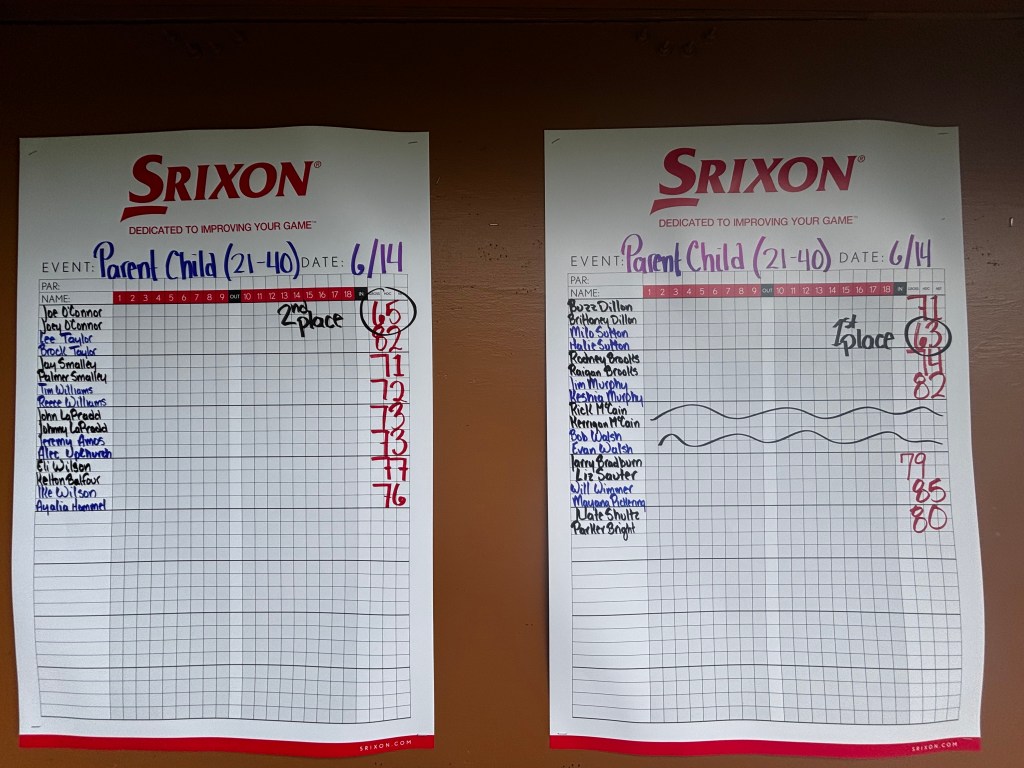 SRIXON®
DEDICATED TO IMPROVING YOUR GAME™
EVENT: Parent Child (21-40) DATE: 6/14
PAR:
NAME: 1 2 3 4 5 6 7 8 9 OUT 10 11 12 13 14 15 16 17 18 IN GROSS HCP NET
Joe O'Connor 2nd place 65
Joey O'Connor
Lee Taylor 82
Brock Taylor
Jay Smalley 71
Palmer Smalley
Tim Williams 72
Reece Williams
John LaPradd 73
Johnny LaPradd
Jeremy Amos 73
Alec Upchurch
Eli Wilson 77
Kelton Balfour
Ike Wilson 76
Ayalia Hommel
SRIXON.COM
SRIXON®
DEDICATED TO IMPROVING YOUR GAME™
EVENT: Parent Child (21-40) DATE: 6/14
PAR:
NAME: 1 2 3 4 5 6 7 8 9 OUT 10 11 12 13 14 15 16 17 18 IN GROSS HCP NET
Buzz Dillon 71
Brittaney Dillon
Milo Sutton 1st place 63
Halie Sutton
Rodney Brooks 74
Raigan Brooks
Jim Murphy 82
Keshia Murphy
Rick McCain
Kerrigan McCain
Bob Walsh
Evan Walsh
Larry Bradburn 79
Liz Sauter
Will Wimmer 85
Mayana Pickering
Nate Shultz 80
Parker Bright
SRIXON.COM